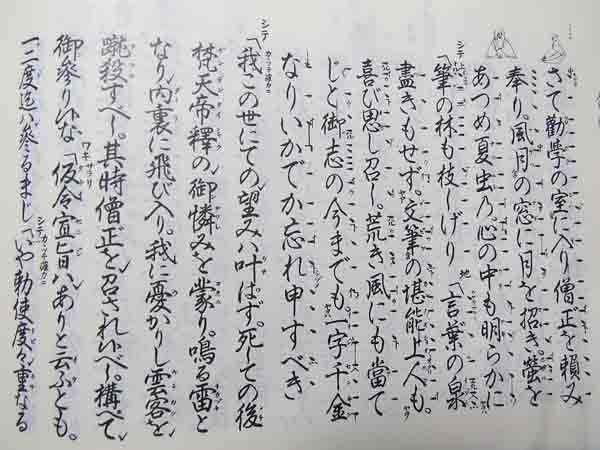 さて勸學の室に入り僧正を頼み
奉り。風月の窓に月を招き。螢を
あつめ夏虫乃。心の中も明らかに
シテ「筆の林も枝しげり 地「言葉の泉
盡きもせず。文筆の堪能上人も。
喜び思し召し。荒き風にも當て
じと御志の今までも。一字千金
なりいかでか忘れ申すべき
シテ「我この世にての望みハ叶はず。死しての後
梵天帝釋の御憐みを蒙り。鳴る雷と
なり。内裏に飛び入り。我に憂かりし雲客を
蹴殺すべし。其時僧正を召され候べし。構へて
御參り候な ワキ サラリ「仮令宣旨ハ。ありと云ふとも。
一二度迄ハ參るまじ シテ「いや勅使度々重なる